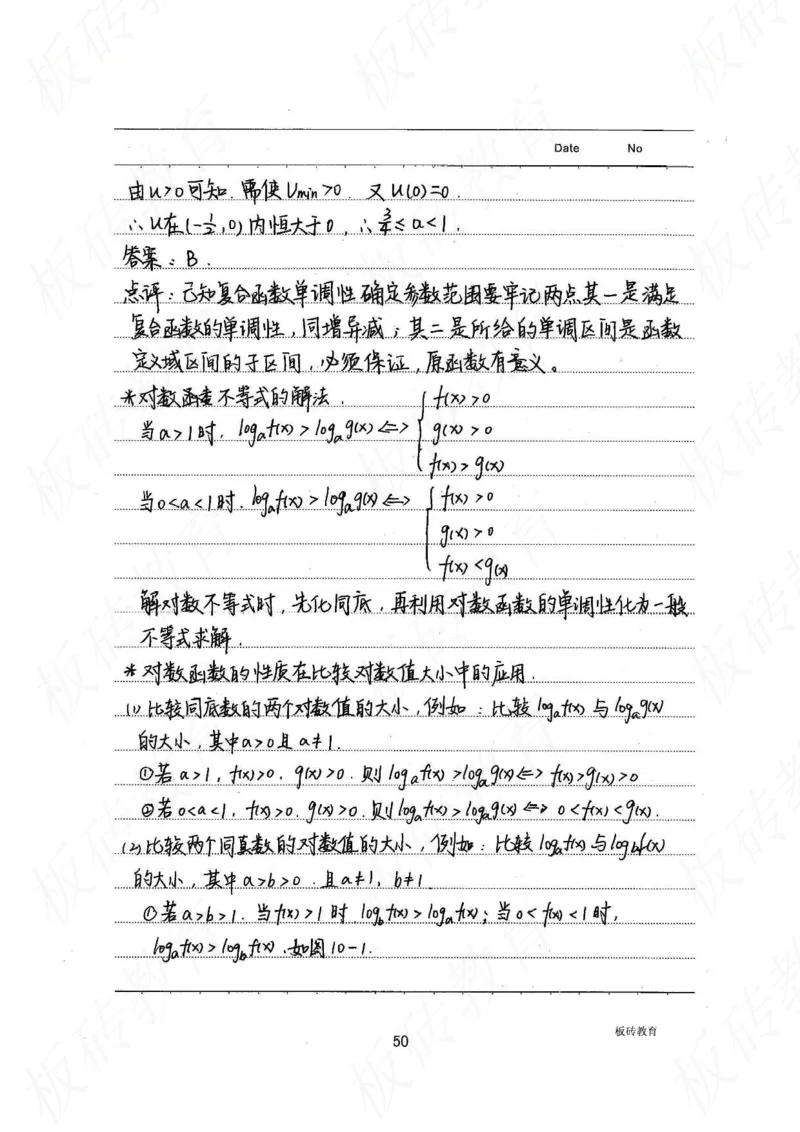 Date No
由u>0可知.需使Umin>0. 又U(0)=0.
∴U在(-1/2,0)内恒大于0,∴3/4≤a<1.
答案:B.
点评:已知复合函数单调性确定参数范围要牢记两点其一是满足
复合函数的单调性,同增异减;其二是所给的单调区间是函数
定义域区间的子区间,必须保证,原函数有意义。
*对数函数不等式的解法.
当a>1时. logₐf(x)>logₐg(x)⇔{ f(x)>0
g(x)>0
f(x)>g(x)
当0<a<1时. logₐf(x)>logₐg(x)⇔{ f(x)>0
g(x)>0
f(x)<g(x)
解对数不等式时,先化同底,再利用对数函数的单调性化为一般
不等式求解.
*对数函数的性质在比较对数值大小中的应用.
(1)比较同底数的两个对数值的大小,例如:比较logₐf(x)与logₐg(x)
的大小,其中a>0且a≠1.
①若a>1,f(x)>0.g(x)>0.则logₐf(x)>logₐg(x)⇔f(x)>g(x)>0
②若0<a<1,f(x)>0.g(x)>0.则logₐf(x)>logₐg(x)⇔0<f(x)<g(x).
(2)比较两个同真数的对数值的大小,例如:比较logₐf(x)与log_b f(x)
的大小,其中a>b>0.且a≠1,b≠1.
①若a>b>1.当f(x)>1时.log_b f(x)>logₐf(x);当0<f(x)<1时,
logₐf(x)>log_b f(x).如图10-1.
板砖教育
50